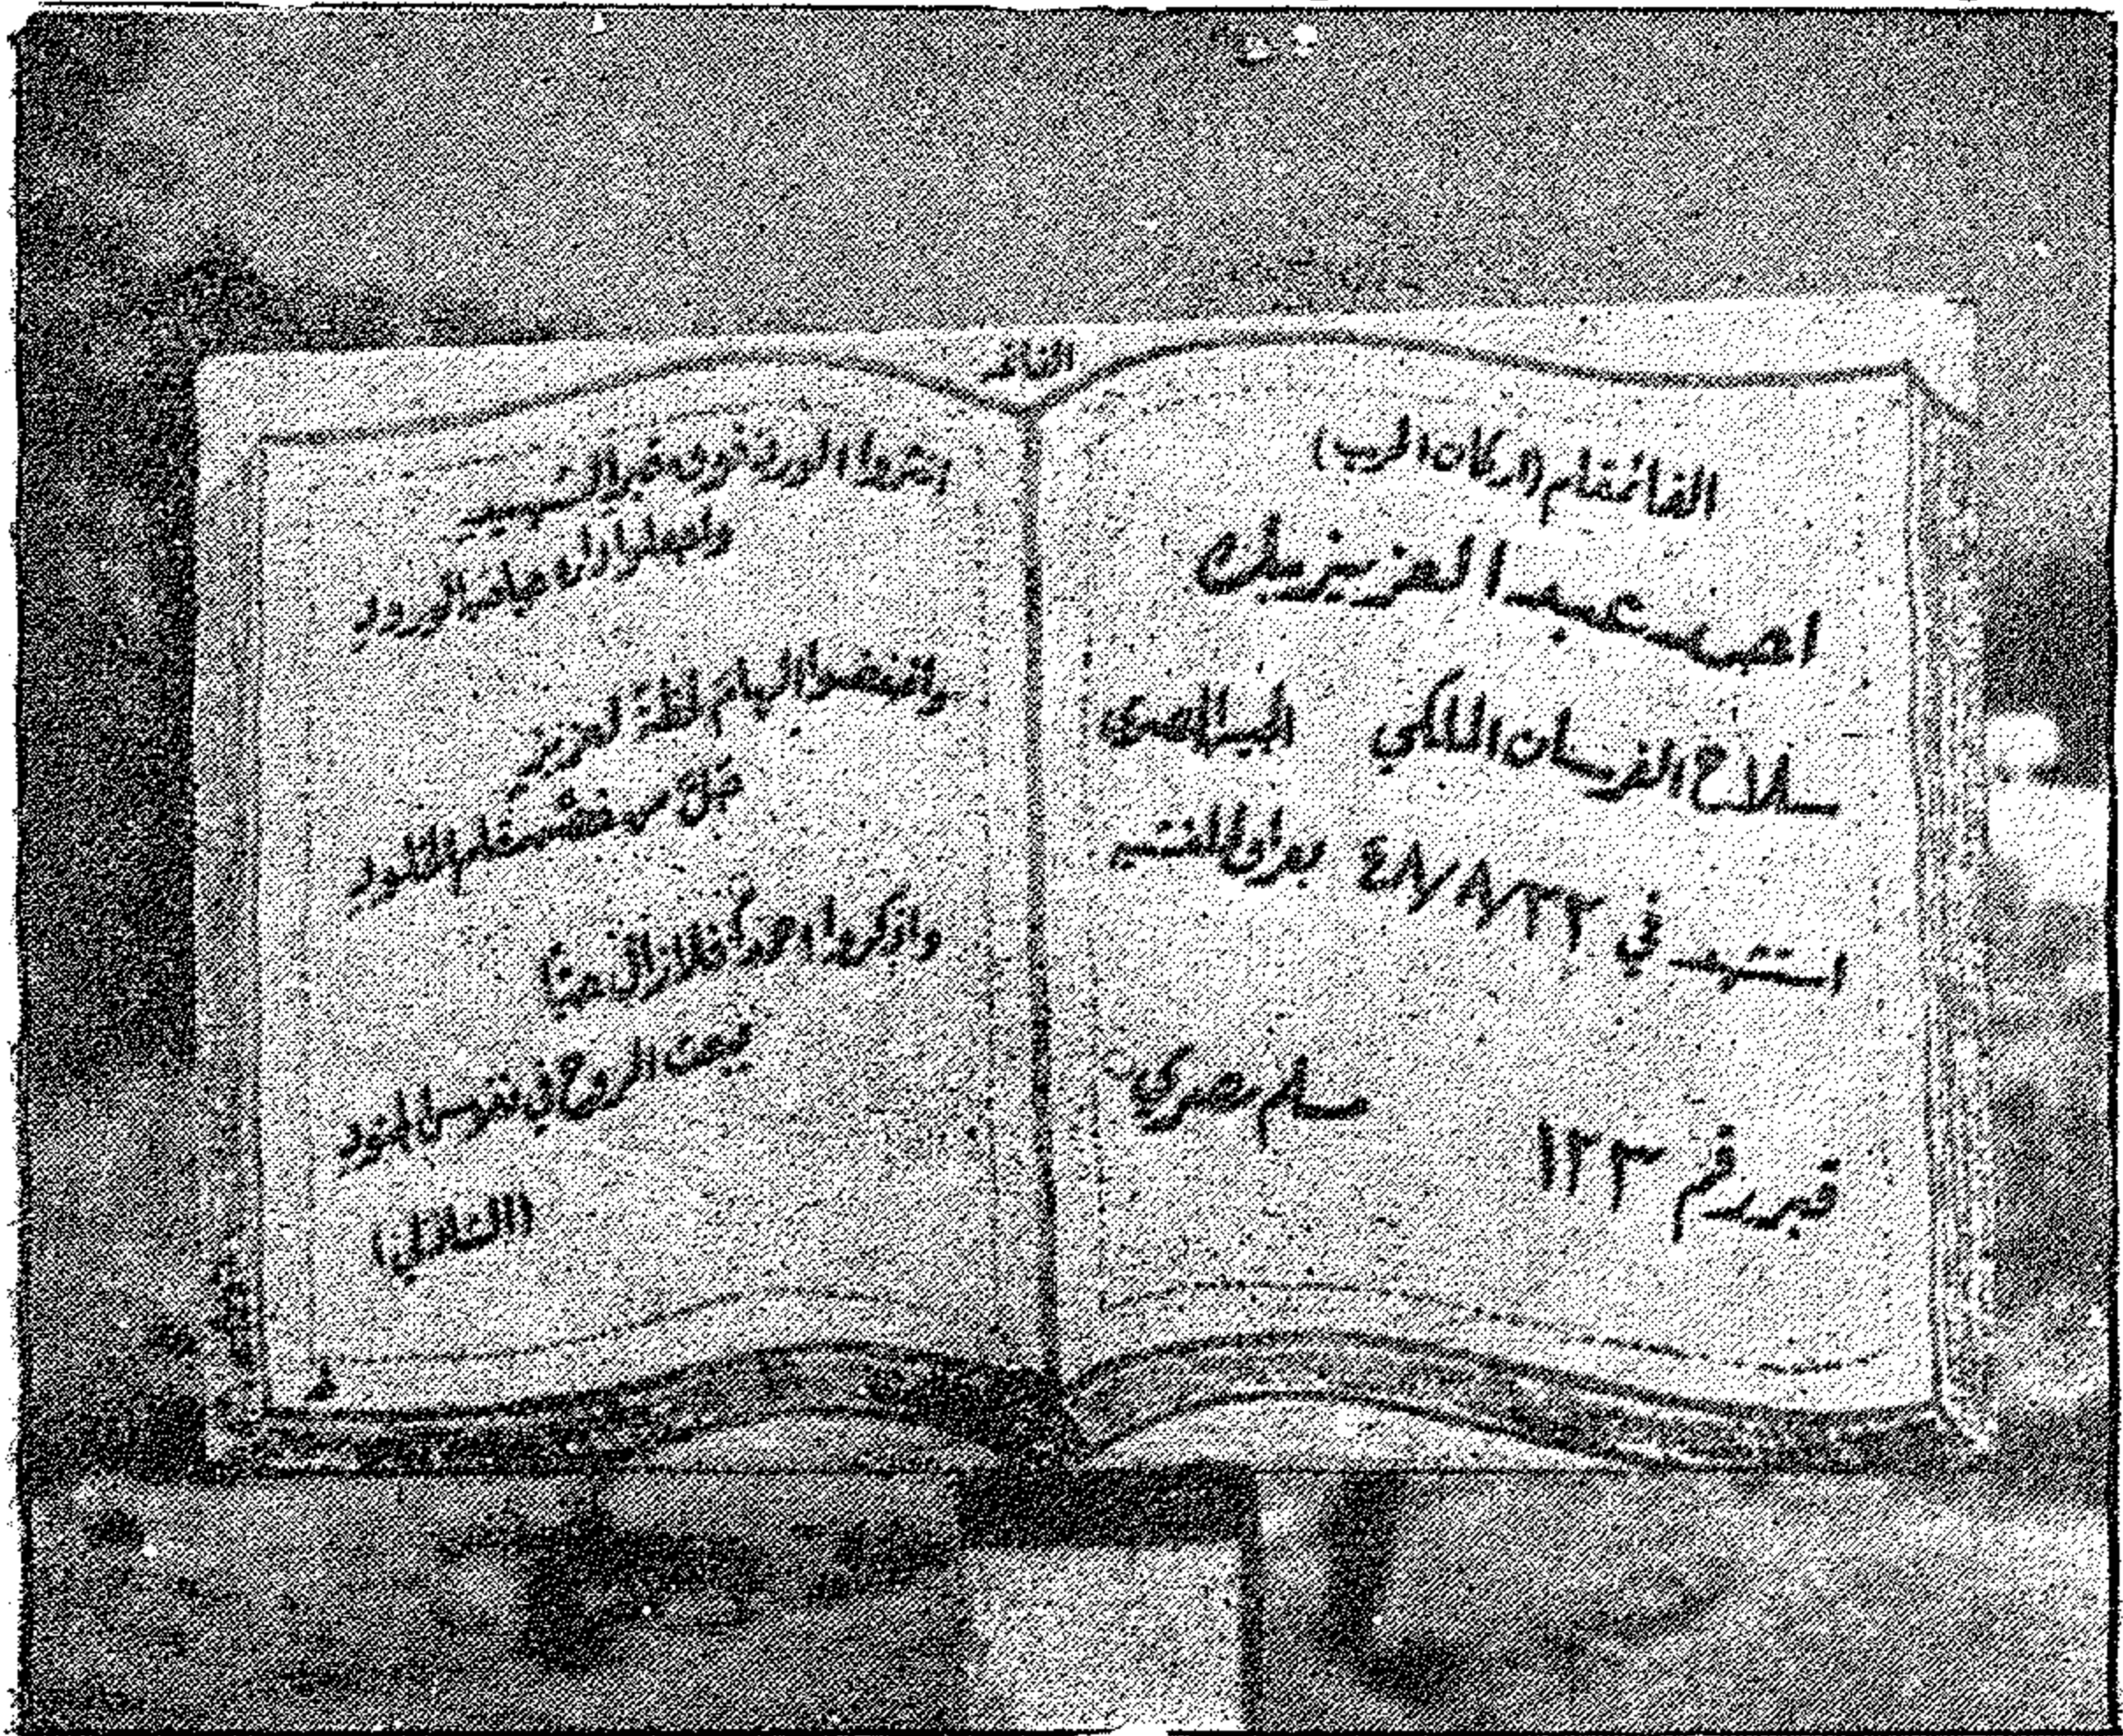 الفاتحه
القائمقام (اركان الحرب)
احمد عبد العزيز بك
سلاح الفرسان الملكي الجيش المصري
استشهد في ٤٨/٨/٢٢ بعراق المنشيه
مسلم مصري
قبر رقم ١٢٣
انثروا الورد فوق قبر الشهيد
واجعلوا حياة الورود
واخفضوا الهام لحظة لعزيز
واذكروا احمد فلا زال حيا
يبعث الروح في نفوس الجنود